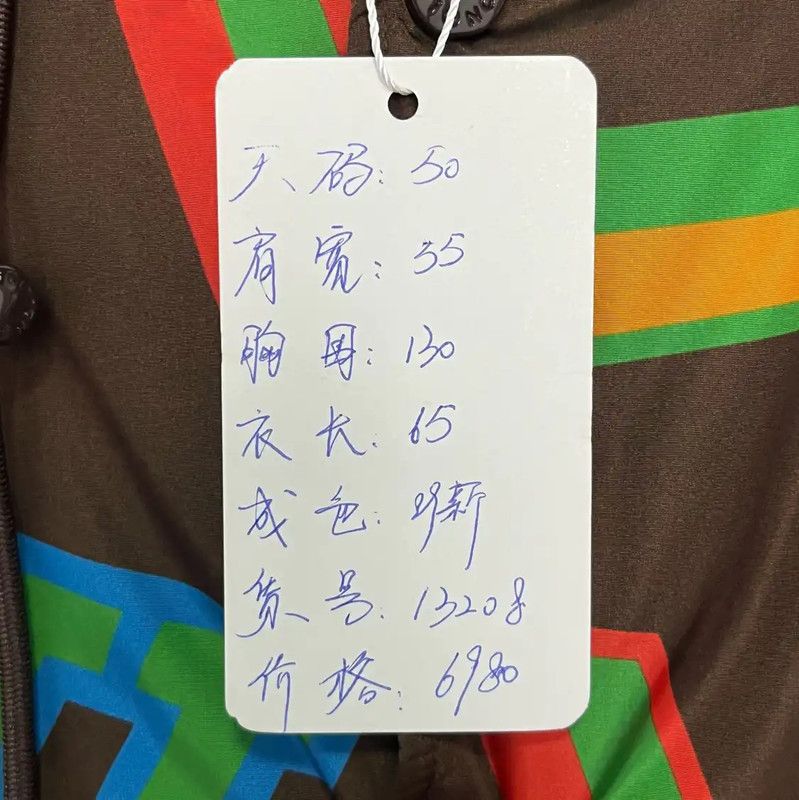 尺码：50
肩宽：55
胸围：130
衣长：65
成色：99新
货号：13208
价格：6980